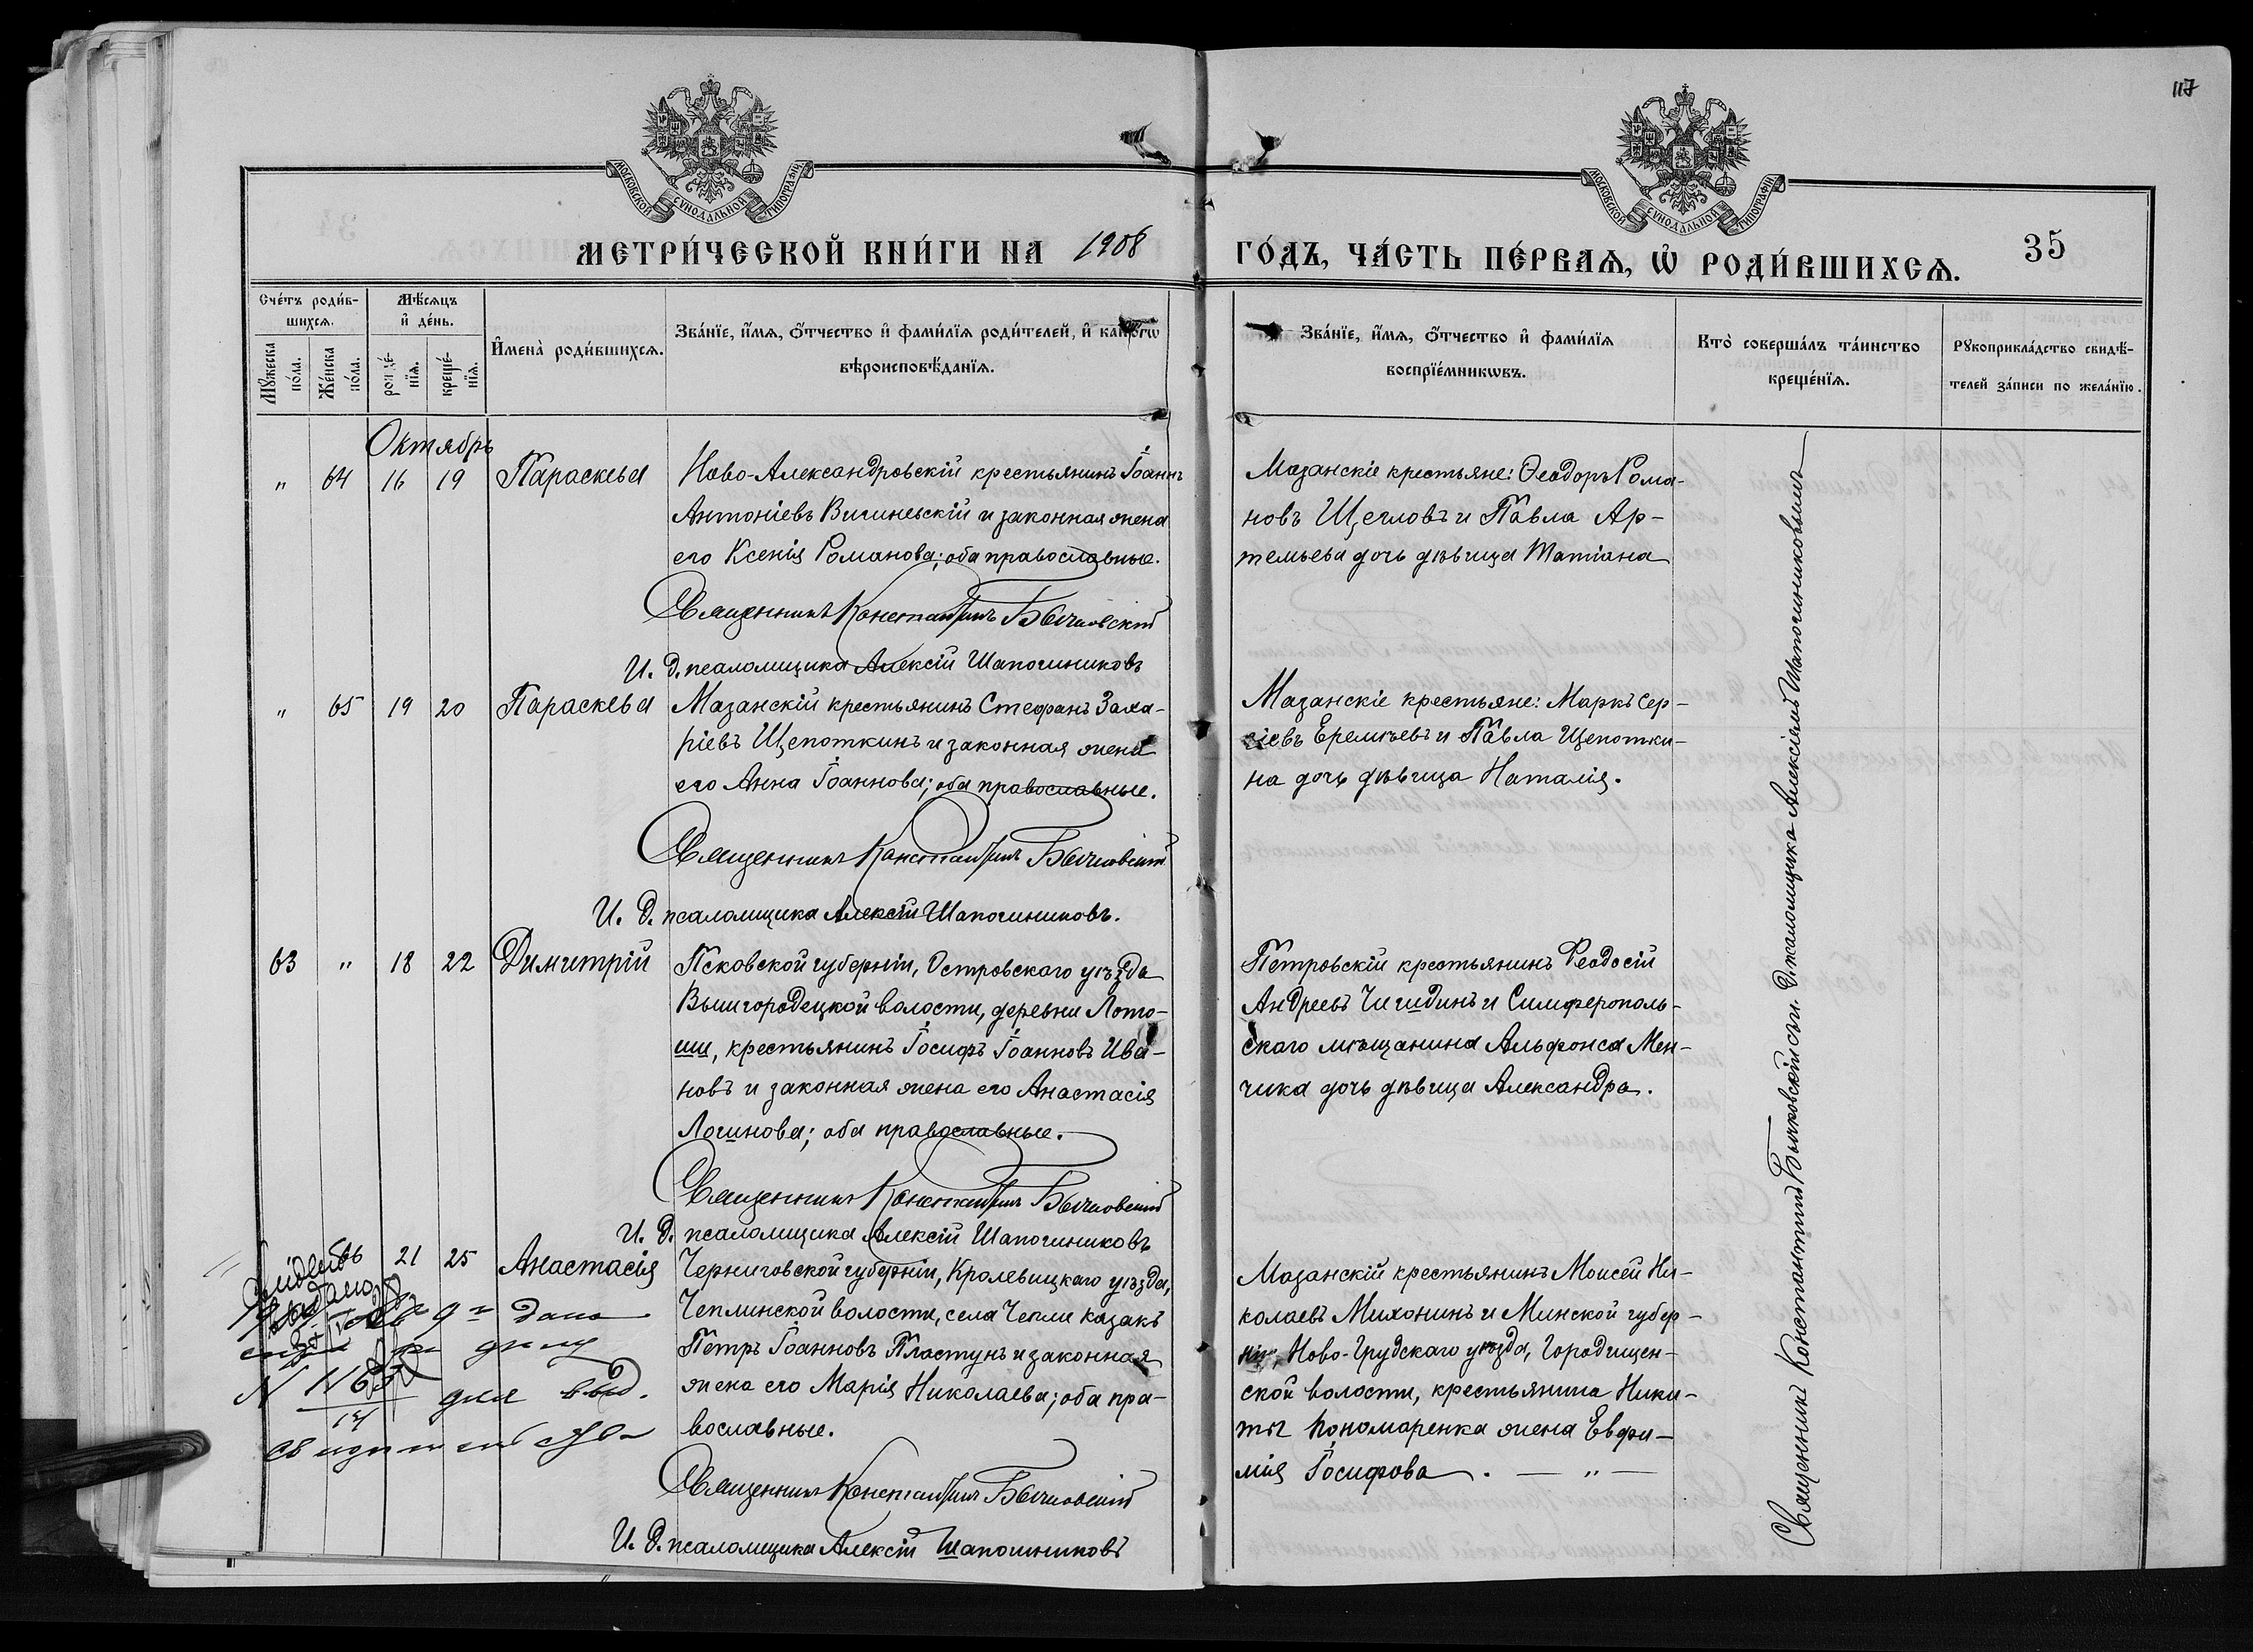 117
МОСКОВСКОЙ СѴНОДАЛЬНОЙ ТИПОГРАФІИ
МОСКОВСКОЙ СѴНОДАЛЬНОЙ ТИПОГРАФІИ
МЕТРИ́ЧЕСКОЙ КНИ́ГИ НА 1908 ГО́ДЪ, ЧА́СТЬ ПЕ́РВАѦ, Ѡ҆ РОДИ́ВШИХСѦ.
35
Сче́тъ роди́в-
шихсѧ.
Мꙋ́жеска
по́ла.
Же́нска
по́ла.
Мѣ́сѧцъ
и҆ де́нь.
рожде́-
нїѧ.
креще́-
нїѧ.
И҆мена̀ роди́вшихсѧ.
Зва́нїе, и҆́мѧ, ѻ҆́тчество и҆ фами́лїѧ роди́телей, и҆ како́гѡ
вѣроисповѣ́данїѧ.
Зва́нїе, и҆́мѧ, ѻ҆́тчество и҆ фами́лїѧ
воспрїе́мникѡвъ.
Кто̀ соверша́лъ та́инство
креще́нїѧ.
Рꙋкоприкла́дство свидѣ́-
телей за́писи по жела́нїю.
Октябрь
" 64 16 19 Параскева
Ново-Александровскій крестьянинъ Іоаннъ
Антоніевъ Вишневскій и законная жена
его Ксенія Романова; оба православные.
Священникъ Константинъ Бычковскій
И. д. псаломщика Алексій Шапошниковъ
Мазанскіе крестьяне: Ѳеодоръ Рома-
новъ Щегловъ и Павла Ар-
темьева дочь дѣвица Татіана
" 65 19 20 Параскева
Мазанскій крестьянинъ Стефанъ Заха-
ріевъ Щепоткинъ и законная жена
его Анна Іоаннова; оба православные.
Священникъ Константинъ Бычковскій
И. д. псаломщика Алексій Шапошниковъ.
Мазанскіе крестьяне: Маркъ Сер-
гіевъ Еремѣевъ и Павла Щепотки-
на дочь дѣвица Наталія.
63 " 18 22 Димитрій
Псковской губерніи, Островскаго уѣзда
Вышгородецкой волости, деревни Лото-
ши, крестьянинъ Іосифъ Іоанновъ Ива-
новъ и законная жена его Анастасія
Логинова; оба православные.
Священникъ Константинъ Бычковскій
И. д. псаломщика Алексій Шапошниковъ
Петровскій крестьянинъ Ѳеодосій
Андреевъ Чигидинъ и Симферополь-
скаго мѣщанина Альфонса Мен-
чика дочь дѣвица Александра.
21 25 Анастасія
Черниговской губерніи, Кролевицкаго уѣзда,
Чеплинской волости, села Чепли казакъ
Петръ Іоанновъ Пластунъ и законная
жена его Марія Николаева; оба пра-
вославные.
Священникъ Константинъ Бычковскій
И. д. псаломщика Алексій Шапошниковъ
Мазанскій крестьянинъ Моисей Ни-
колаевъ Михонинъ и Минской губер-
ніи, Ново-Грудскаго уѣзда, Городищен-
ской волости, крестьянина Ники-
ты Пономаренка жена Евфи-
мія Іосифова. — " —
выдано
дана
N 1163
14
для выд.
Священникъ Константинъ Бычковскій съ и. д. псаломщика Алексіемъ Шапошниковымъ